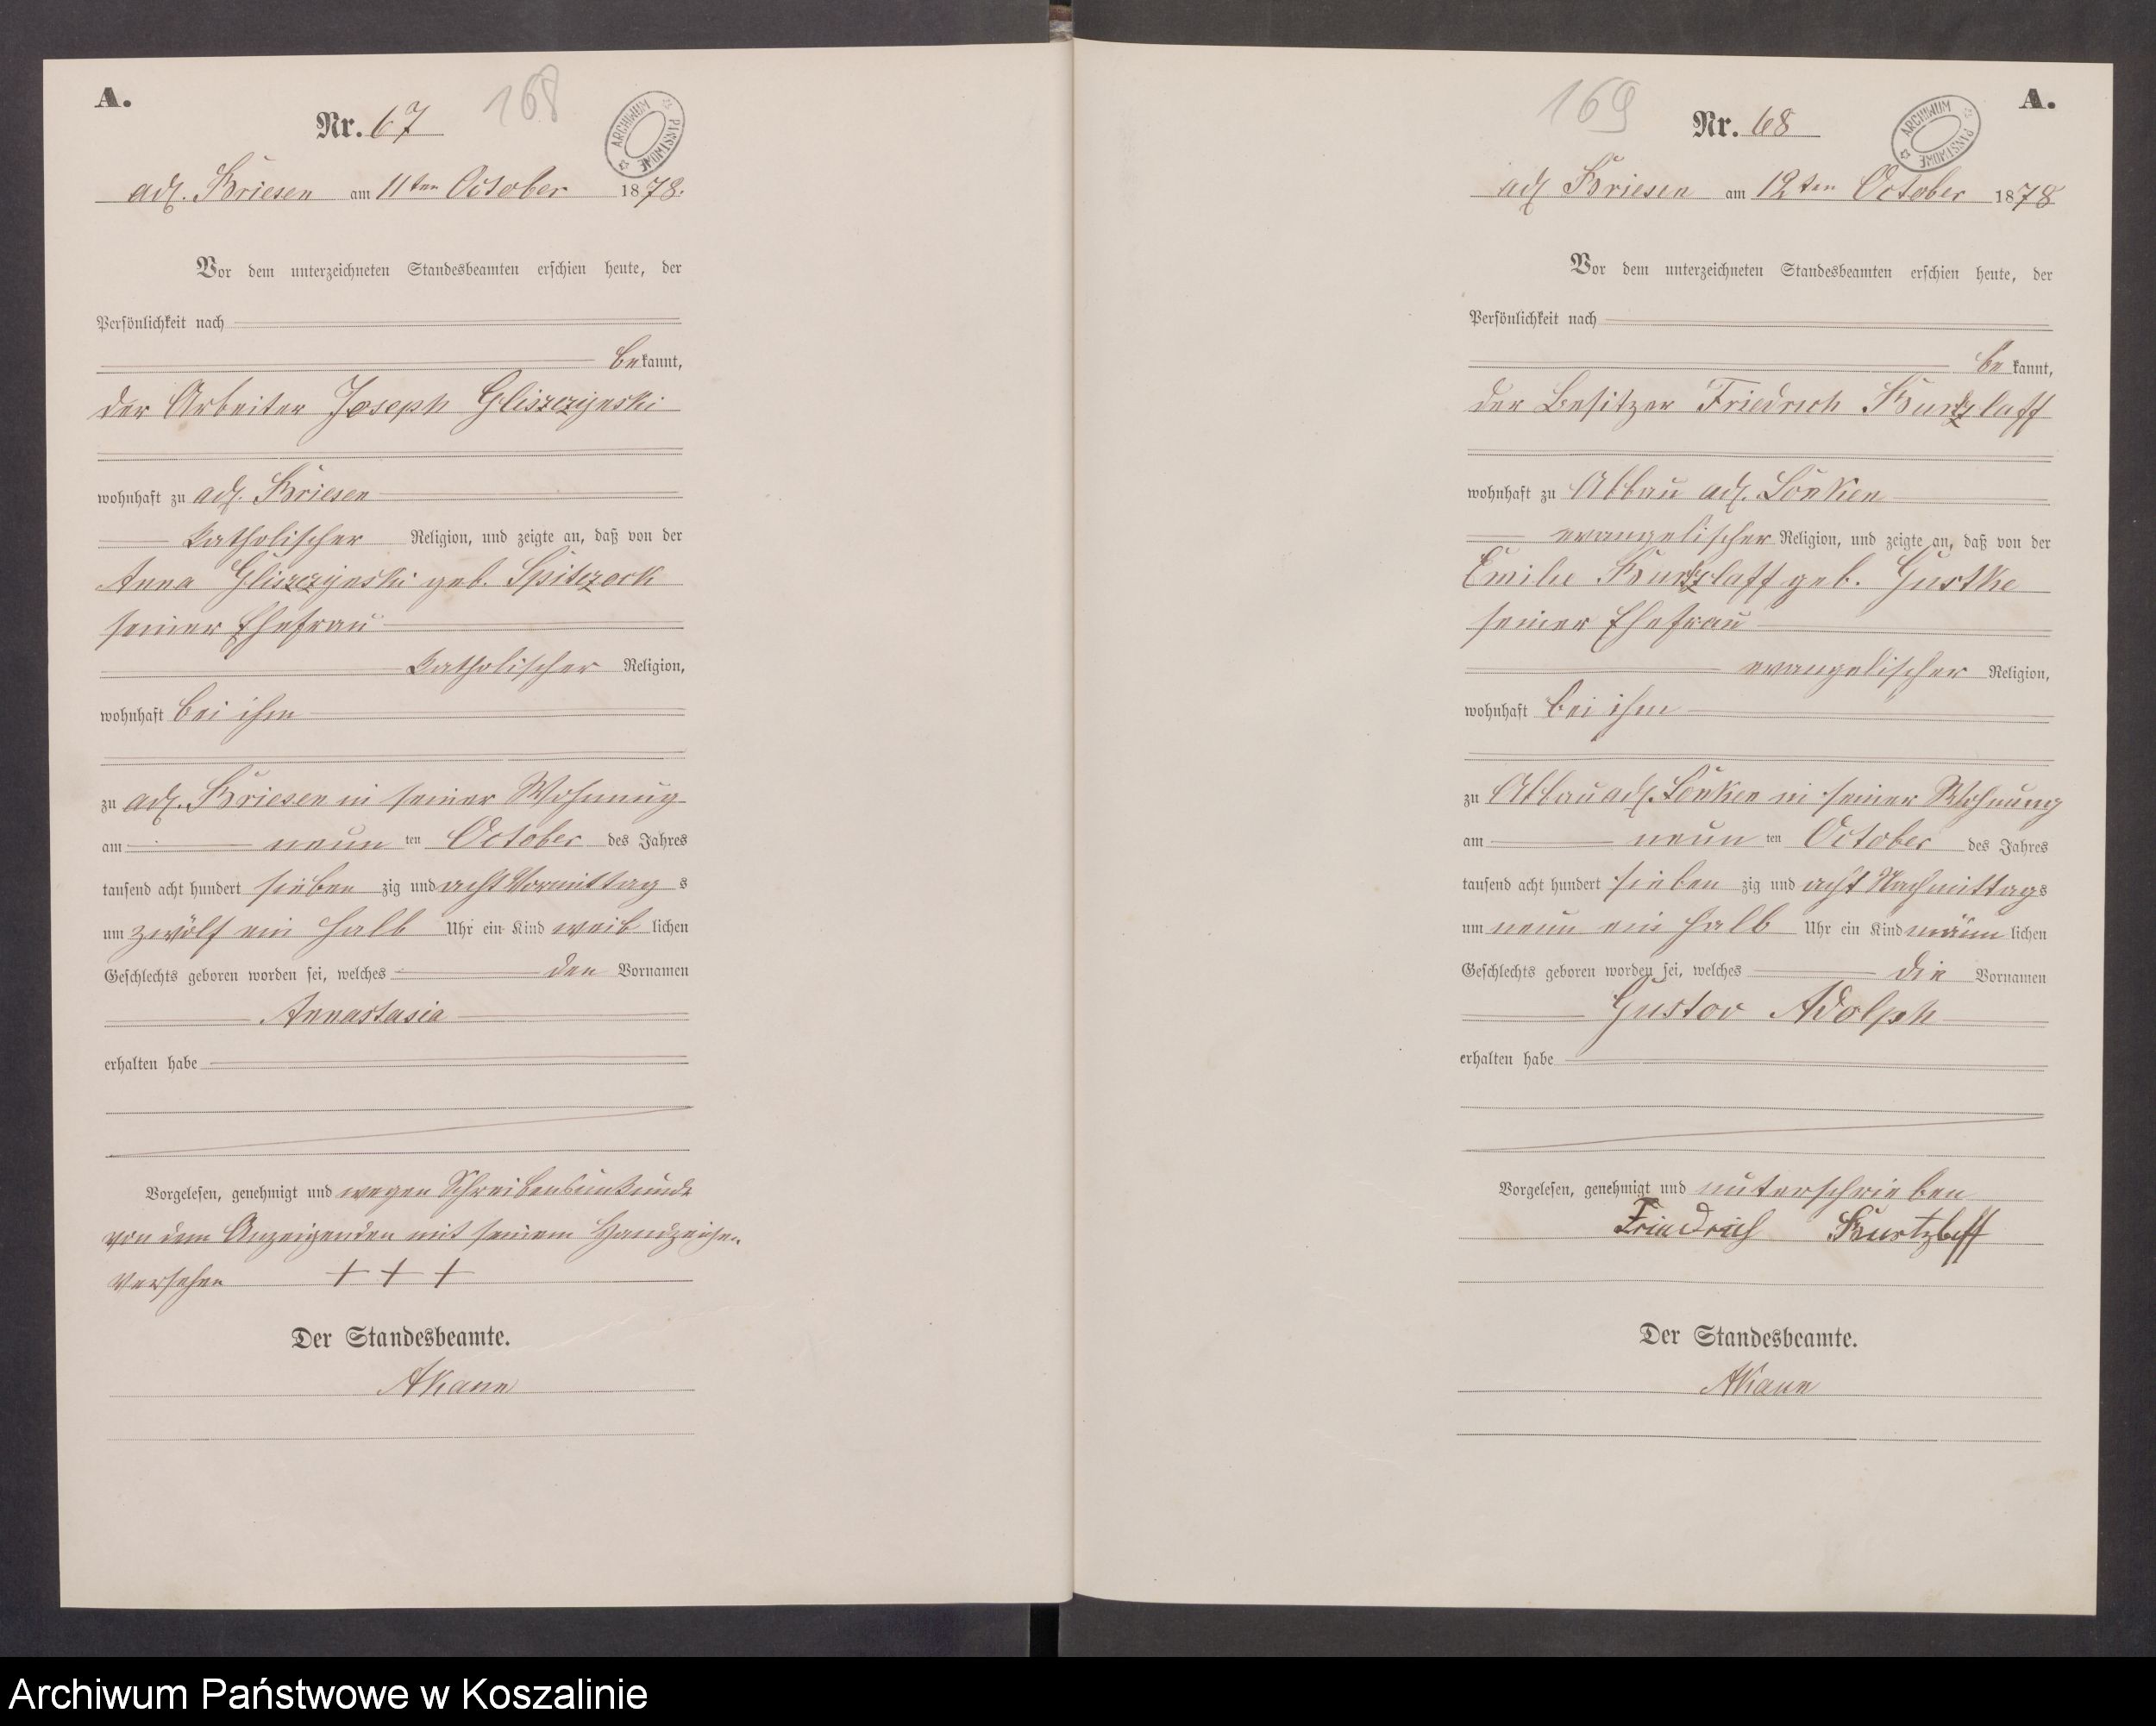 A.
168
Nr. 67
ARCHIWUM PAŃSTWOWE
adl. Briesen am 11ten October 1878.
Vor dem unterzeichneten Standesbeamten erschien heute, der
Persönlichkeit nach
bekannt,
der Arbeiter Joseph Gliszczynski
wohnhaft zu adl. Briesen
katholischer Religion, und zeigte an, daß von der
Anna Gliszczynski geb. Spiczock
seiner Ehefrau
katholischer Religion,
wohnhaft bei ihm
zu adl. Briesen in seiner Wohnung
am neun ten October des Jahres
tausend acht hundert sieben zig und acht Vormittag s
um zwölf ein halb Uhr ein Kind weib lichen
Geschlechts geboren worden sei, welches den Vornamen
Annastasia
erhalten habe
Vorgelesen, genehmigt und wegen Schreibensunkunde
von dem Anzeigenden mit seinem Handzeichen
versehen + + +
Der Standesbeamte.
AKann
169
A.
Nr. 68
ARCHIWUM PAŃSTWOWE
adl Briesen am 12ten October 1878
Vor dem unterzeichneten Standesbeamten erschien heute, der
Persönlichkeit nach
be kannt,
der Besitzer Friedrich Kurtzlaff
wohnhaft zu Abbau adl. Lonken
evangelischer Religion, und zeigte an, daß von der
Emilie Kurtzlaff geb. Gustke
seiner Ehefrau
evangelischer Religion,
wohnhaft bei ihm
zu Abbau adl. Lonken in seiner Wohnung
am neun ten October des Jahres
tausend acht hundert sieben zig und acht Nachmittags
um neun ein halb Uhr ein Kind männ lichen
Geschlechts geboren worden sei, welches die Vornamen
Gustav Adolph
erhalten habe
Vorgelesen, genehmigt und unterschrieben
Friedrich Kurtzlaff
Der Standesbeamte.
AKann
Archiwum Państwowe w Koszalinie